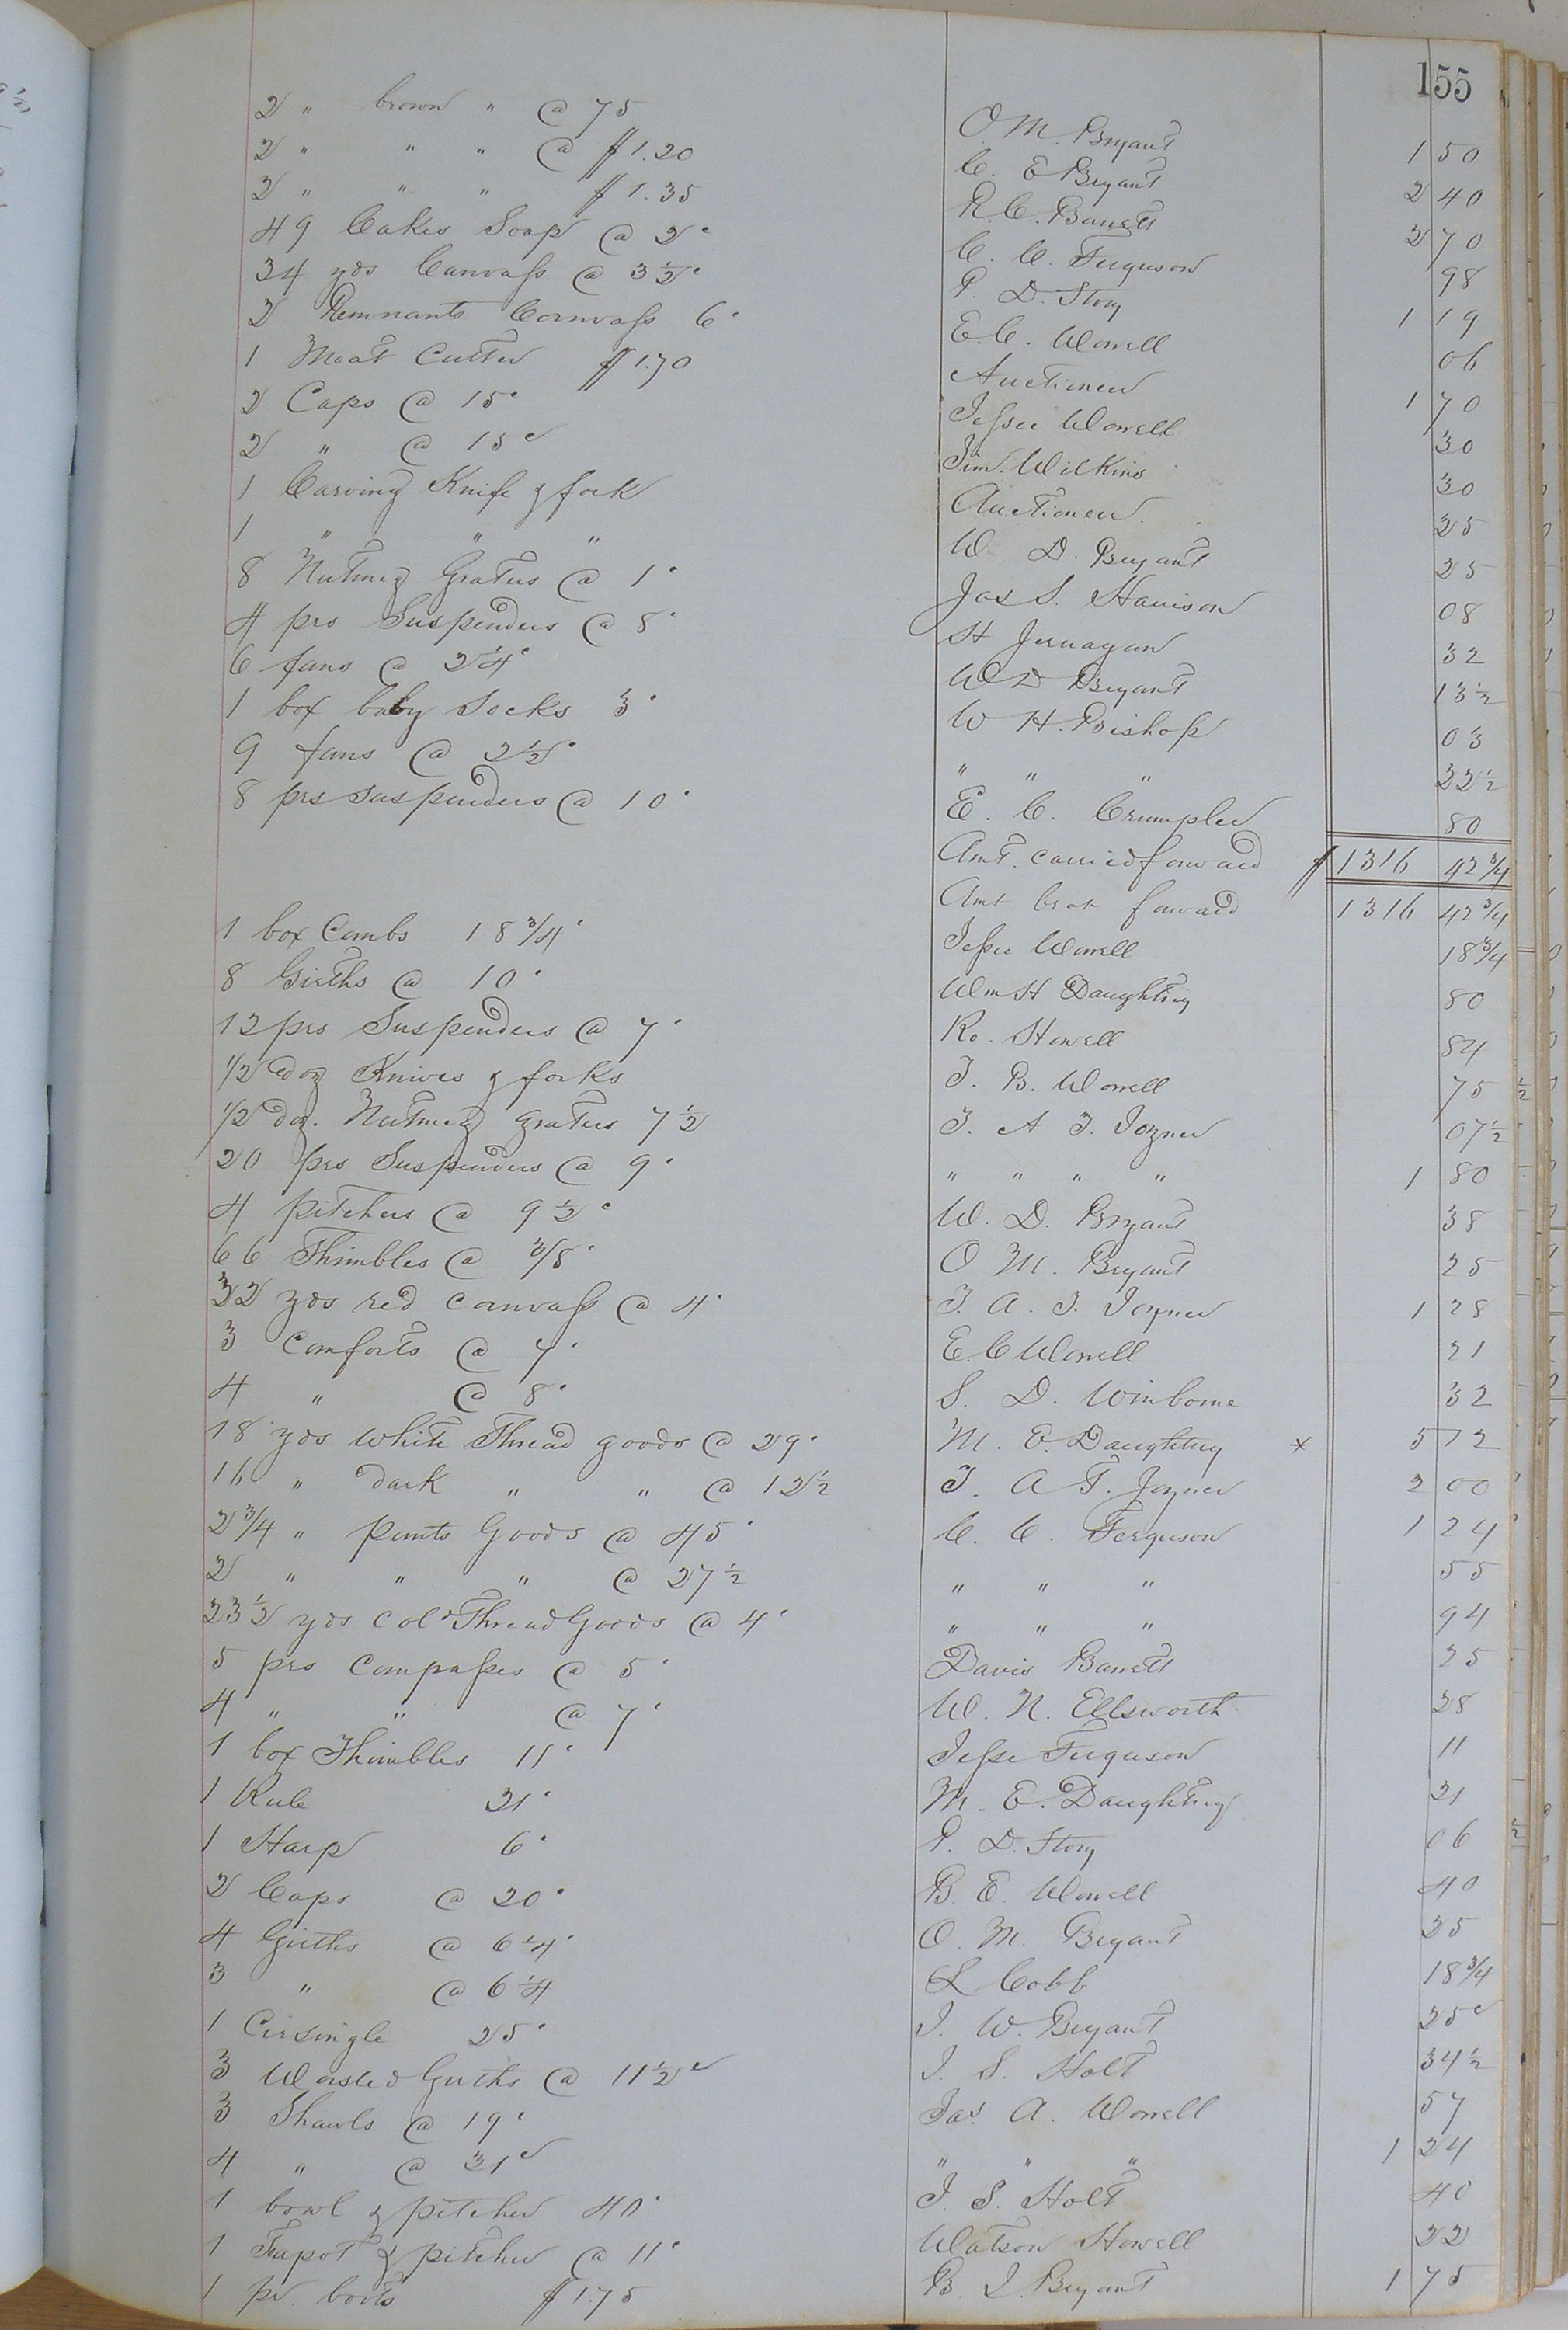 155
2 " brown " @ 75 O. M. Bryant 1 50
2 " " " @ $1.20 C. E Bryant 2 40
2 " " " $1.35 R. C. Barrett 2 70
49 Cakes Soap @ 2c C. C. Ferguson 98
34 yds Canvass @ 3½c P. D. Story 1 19
2 Remnants Canvass 6c E. C. Worrell 06
1 Meat Cutter $1.70 Auctioneer 1 70
2 Caps @ 15c Jessee Worrell 30
2 " @ 15c Jim. Wilkins 30
1 Carving Knife & fork Auctioneer 25
1 " " " W. D. Bryant 25
8 Nutmeg Graters @ 1c Jas S. Harrison 08
4 prs Suspenders @ 8c H Jernagan 32
6 fans @ 2¼c W D Bryant 13½
1 box baby Socks 3c W H. Bishop 03
9 fans @ 2½c " " " 22½
8 prs suspenders @ 10c E. C. Crumpler 80
Amt. carried forward $1316 42¾
Amt brot forward 1316 42¾
1 box Combs 18¾c Jessee Worrell 18¾
8 Girths @ 10c Wm H Daughtrey 80
12 prs Suspenders @ 7c Ro. Howell 84
1/2 doz Knives & forks J. B. Worrell 75
1/2 doz. Nutmeg graters 7½ J. A J. Joyner 07½
20 prs Suspenders @ 9c " " " " 1 80
4 pitchers @ 9½c W. D. Bryant 38
66 Thimbles @ 3/8c O M. Bryant 25
32 yds red canvass @ 4c J. A. J. Joyner 1 28
3 Comforts @ 7c E. C Worrell 21
4 " @ 8c S. D. Winborne 32
18 yds white Thread goods @ 29c M. E. Daughtrey * 5 12
16 " dark " " @ 12½ J. A J. Joyner 2 00
2¾ " pants Goods @ 45c C. C. Ferguson 1 24
2 " " " @ 27½ " " " 55
23½ yds Cold Thread Goods @ 4c " " " 94
5 prs Compasses @ 5c Davis Barrett 25
4 " " @ 7c W. N. Ellsworth 28
1 box Thimbles 11c Jesse Ferguson 11
1 Rule 21c M. E. Daughtrey 21
1 Harp 6c P. D. Story 06
2 Caps @ 20c B. E. Worrell 40
4 Girths @ 6¼c O. M. Bryant 25
3 " @ 6¼ L Cobb 18¾
1 Cirsingle 25c J. W. Bryant 25c
3 Worsted Girths @ 11½c J. S. Holt 34½
3 Shawls @ 19c Jas. A. Worrell 57
4 " @ 31c " " " 1 24
1 bowl & pitcher 40c J. S. Holt 40
1 Teapot & pitcher @ 11c Watson Howell 22
1 pr. boots $1.75 B. J. Bryant 1 75